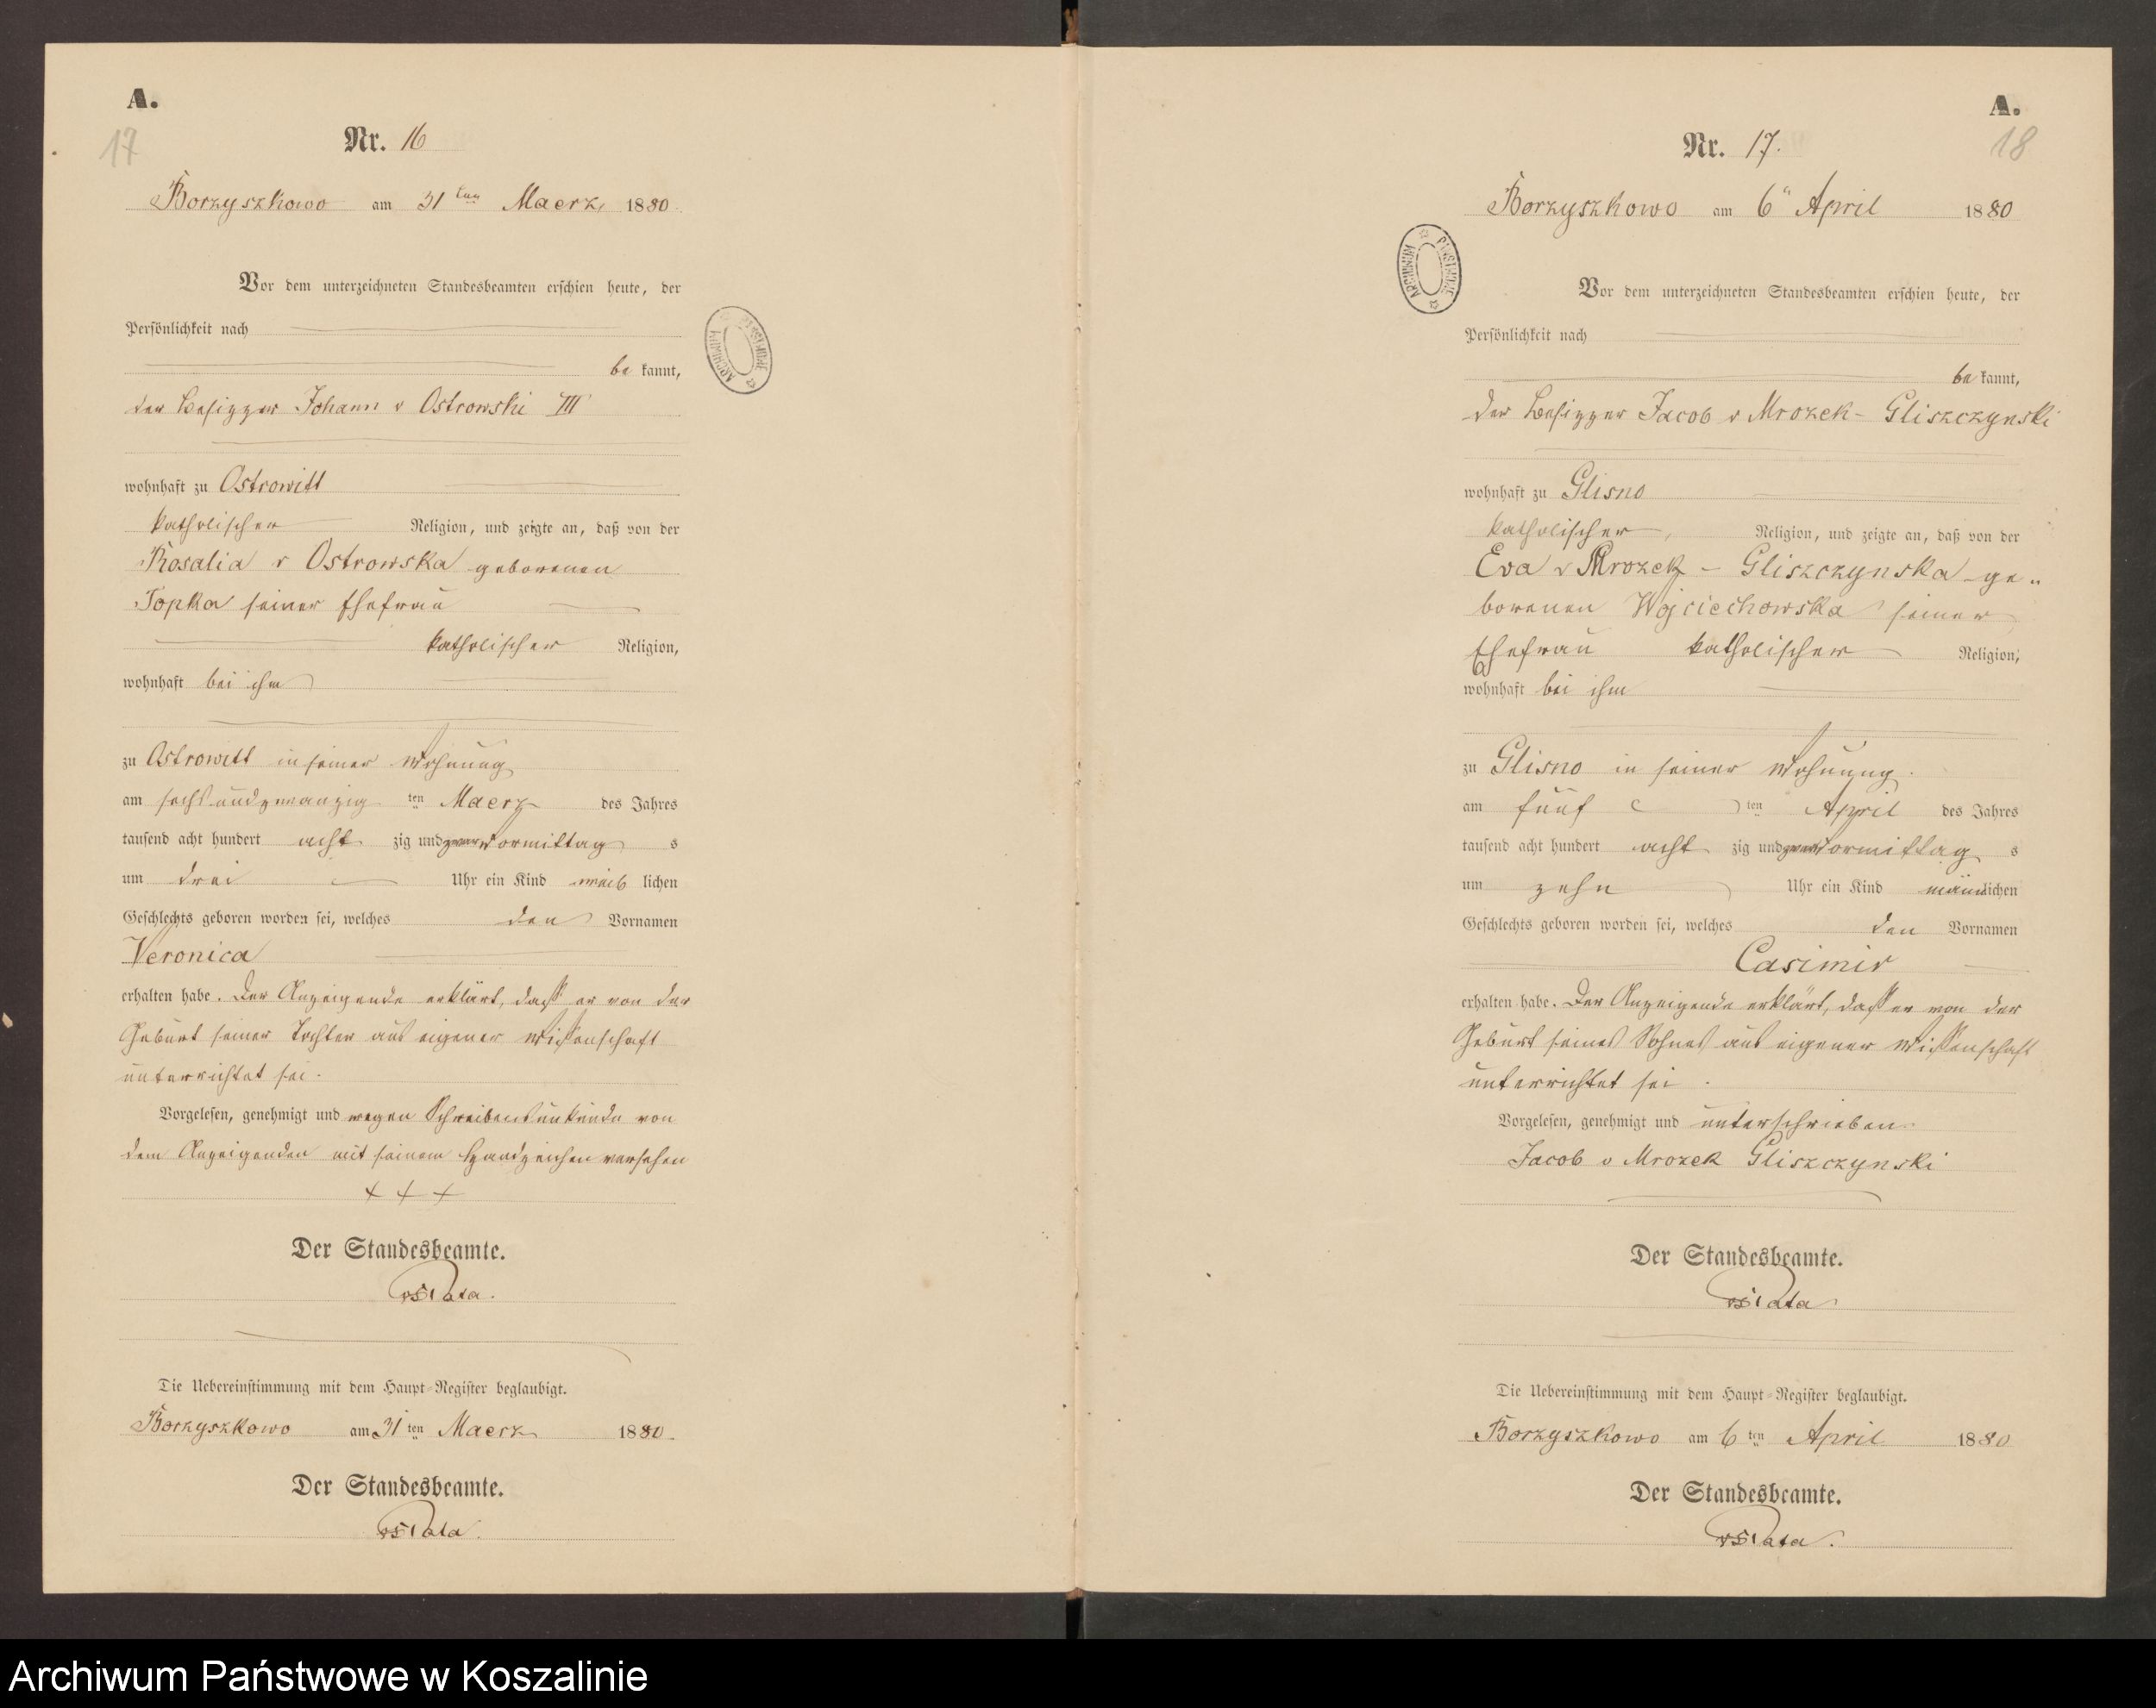 A.
17
Nr. 16
Borzyszkowo am 31ten Maerz 1880.
Vor dem unterzeichneten Standesbeamten erschien heute, der
Persönlichkeit nach
be kannt,
der Besitzer Johann v Ostrowski III
wohnhaft zu Ostrowitt
katholischer Religion, und zeigte an, daß von der
Rosalia v Ostrowska geborenen
Topka seiner Ehefrau
katholischer Religion,
wohnhaft bei ihm
zu Ostrowitt in seiner Wohnung
am sechsundzwanzig ten Maerz des Jahres
tausend acht hundert acht zig und zwar Vormittag s
um drei Uhr ein Kind weib lichen
Geschlechts geboren worden sei, welches den Vornamen
Veronica
erhalten habe. Der Anzeigende erklärt, dass er von der
Geburt seiner Tochter aus eigener Wissenschaft
unterrichtet sei.
Vorgelesen, genehmigt und wegen Schreibensunkunde von
dem Anzeigenden mit seinem Handzeichen versehen
+ + +
Der Standesbeamte.
Die Uebereinstimmung mit dem Haupt-Register beglaubigt.
Borzyszkowo am 31 ten Maerz 1880.
Der Standesbeamte.
A.
18
Nr. 17.
Borzyszkowo am 6" April 1880
Vor dem unterzeichneten Standesbeamten erschien heute, der
Persönlichkeit nach
be kannt,
der Besitzer Jacob v Mrozek-Gliszczynski
wohnhaft zu Glisno
katholischer, Religion, und zeigte an, daß von der
Eva v Mrozek - Gliszczynska ge"
borenen Wojciechowska seiner
Ehefrau katholischer Religion,
wohnhaft bei ihm
zu Glisno in seiner Wohnung.
am fünf ten April des Jahres
tausend acht hundert acht zig und zwar Vormittag s
um zehn Uhr ein Kind männlichen
Geschlechts geboren worden sei, welches den Vornamen
Casimir
erhalten habe. Der Anzeigende erklärt, dass er von der
Geburt seines Sohnes aus eigener Wissenschaft
unterrichtet sei.
Vorgelesen, genehmigt und unterschrieben.
Jacob v Mrozek Gliszczynski
Der Standesbeamte.
Die Uebereinstimmung mit dem Haupt-Register beglaubigt.
Borzyszkowo am 6 ten April 1880
Der Standesbeamte.
Archiwum Państwowe w Koszalinie